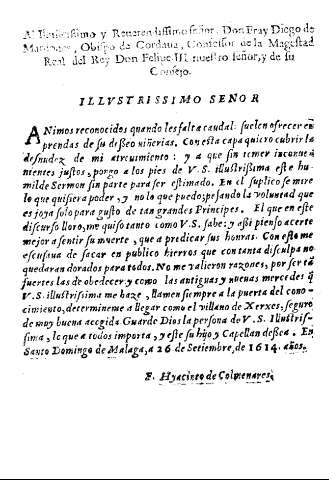 Al Ilustrissimo y Reverendissimo señor, Don Fray Diego de
Mardones, Obispo de Cordoua, Confessor de la Magestad
Real del Rey Don Felipe III nuestro señor, y de su
Consejo.
ILLVSTRISSIMO SENOR
ANimos reconocidos quando les falta caudal: suelen ofrecer en
prendas de su desseo niñerias. Con esta capa quiero cubrir la
desnudez de mi atreuimiento: y a que sin temer inconue
nientes justos, pongo a los pies de V.S. illustrissima este hu
milde Sermon sin parte para ser estimado. En el suplico se mire
lo que quisiera poder, y no lo que puedo; pesando la voluntad que
es joya solo para gusto de tan grandes Principes. El que en este
discurso lloro, me quiso tanto como V.S. sabe: y assi pienso acerte
mejor a sentir su muerte, que a predicar sus honras. Con esto me
escusaua de sacar en publico hierros que con tanta disculpa no
quedaran dorados para todos. No me valieron razones, por ser tā
fuertes las de obedecer y como las antiguas y nueuas mercedes q̃
V.S. illustrissima me haze, llamen siempre a la puerta del cono-
cimiento, determineme a llegar como el villano de Xerxes, seguro
de muy buena acogida. Guarde Dios la persona de V.S. Illustris-
sima, lo que a todos importa, y este su hijo y Capellan dessea. En
Santo Domingo de Malaga, a 26 de Setiembre, de 1614. años.
F. Hyacinto de Colmenares.